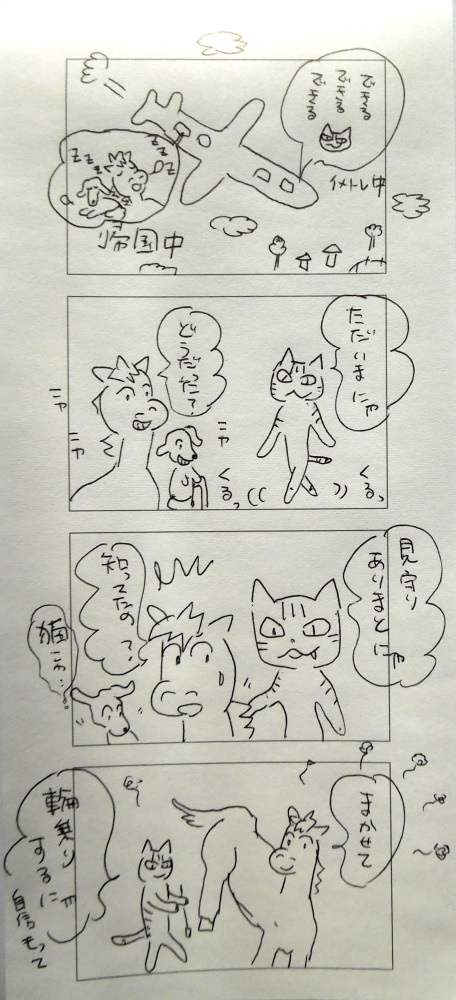 できる
できる
できる
イメトレ中
zzz
zzz
帰国中
ただいまにゃ
どうだった?
ニヤ
ニヤ
ニヤ
くるっ
くるっ
見守り
ありまとにゃ
知ってたの?
まかせて
輪乗り
するにゃ
自信もって